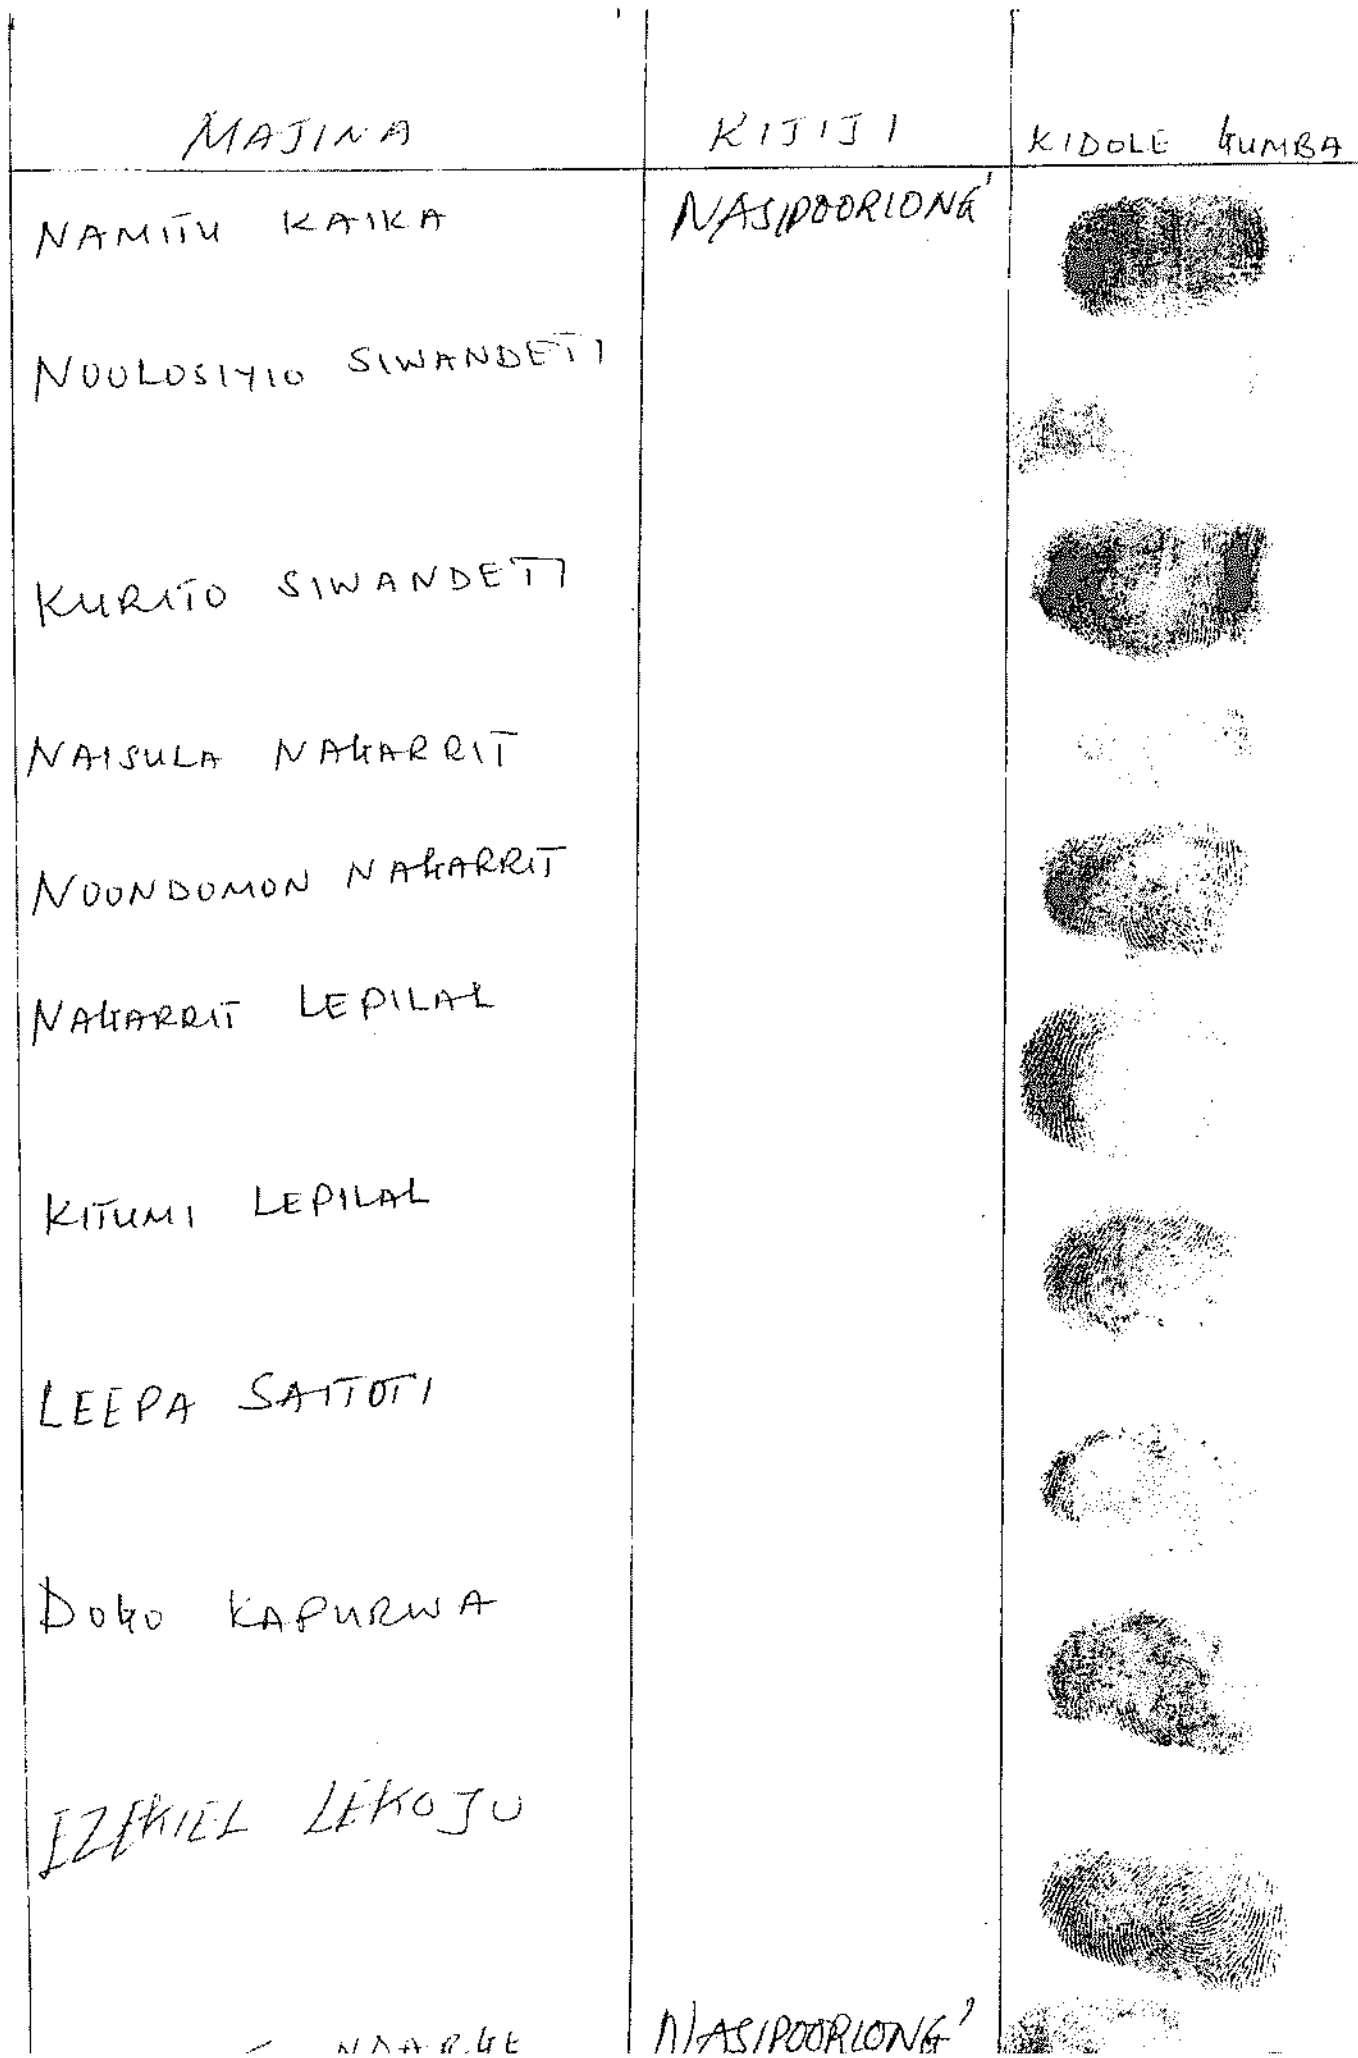 MAJINA KIJIJI KIDOLE GUMBA
NAMITU KAIKA NASIPOORIONG'
NOOLOSIYIO SIWANDETI
KURITO SIWANDETI
NAISULA NAGARRIT
NOONDOMON NAGARRIT
NAGARRIT LEPILAL
KITUMI LEPILAL
LEEPA SAITOTI
DOGO KAPURWA
IZEKIEL LEKOJU
NASIPOORIONG'